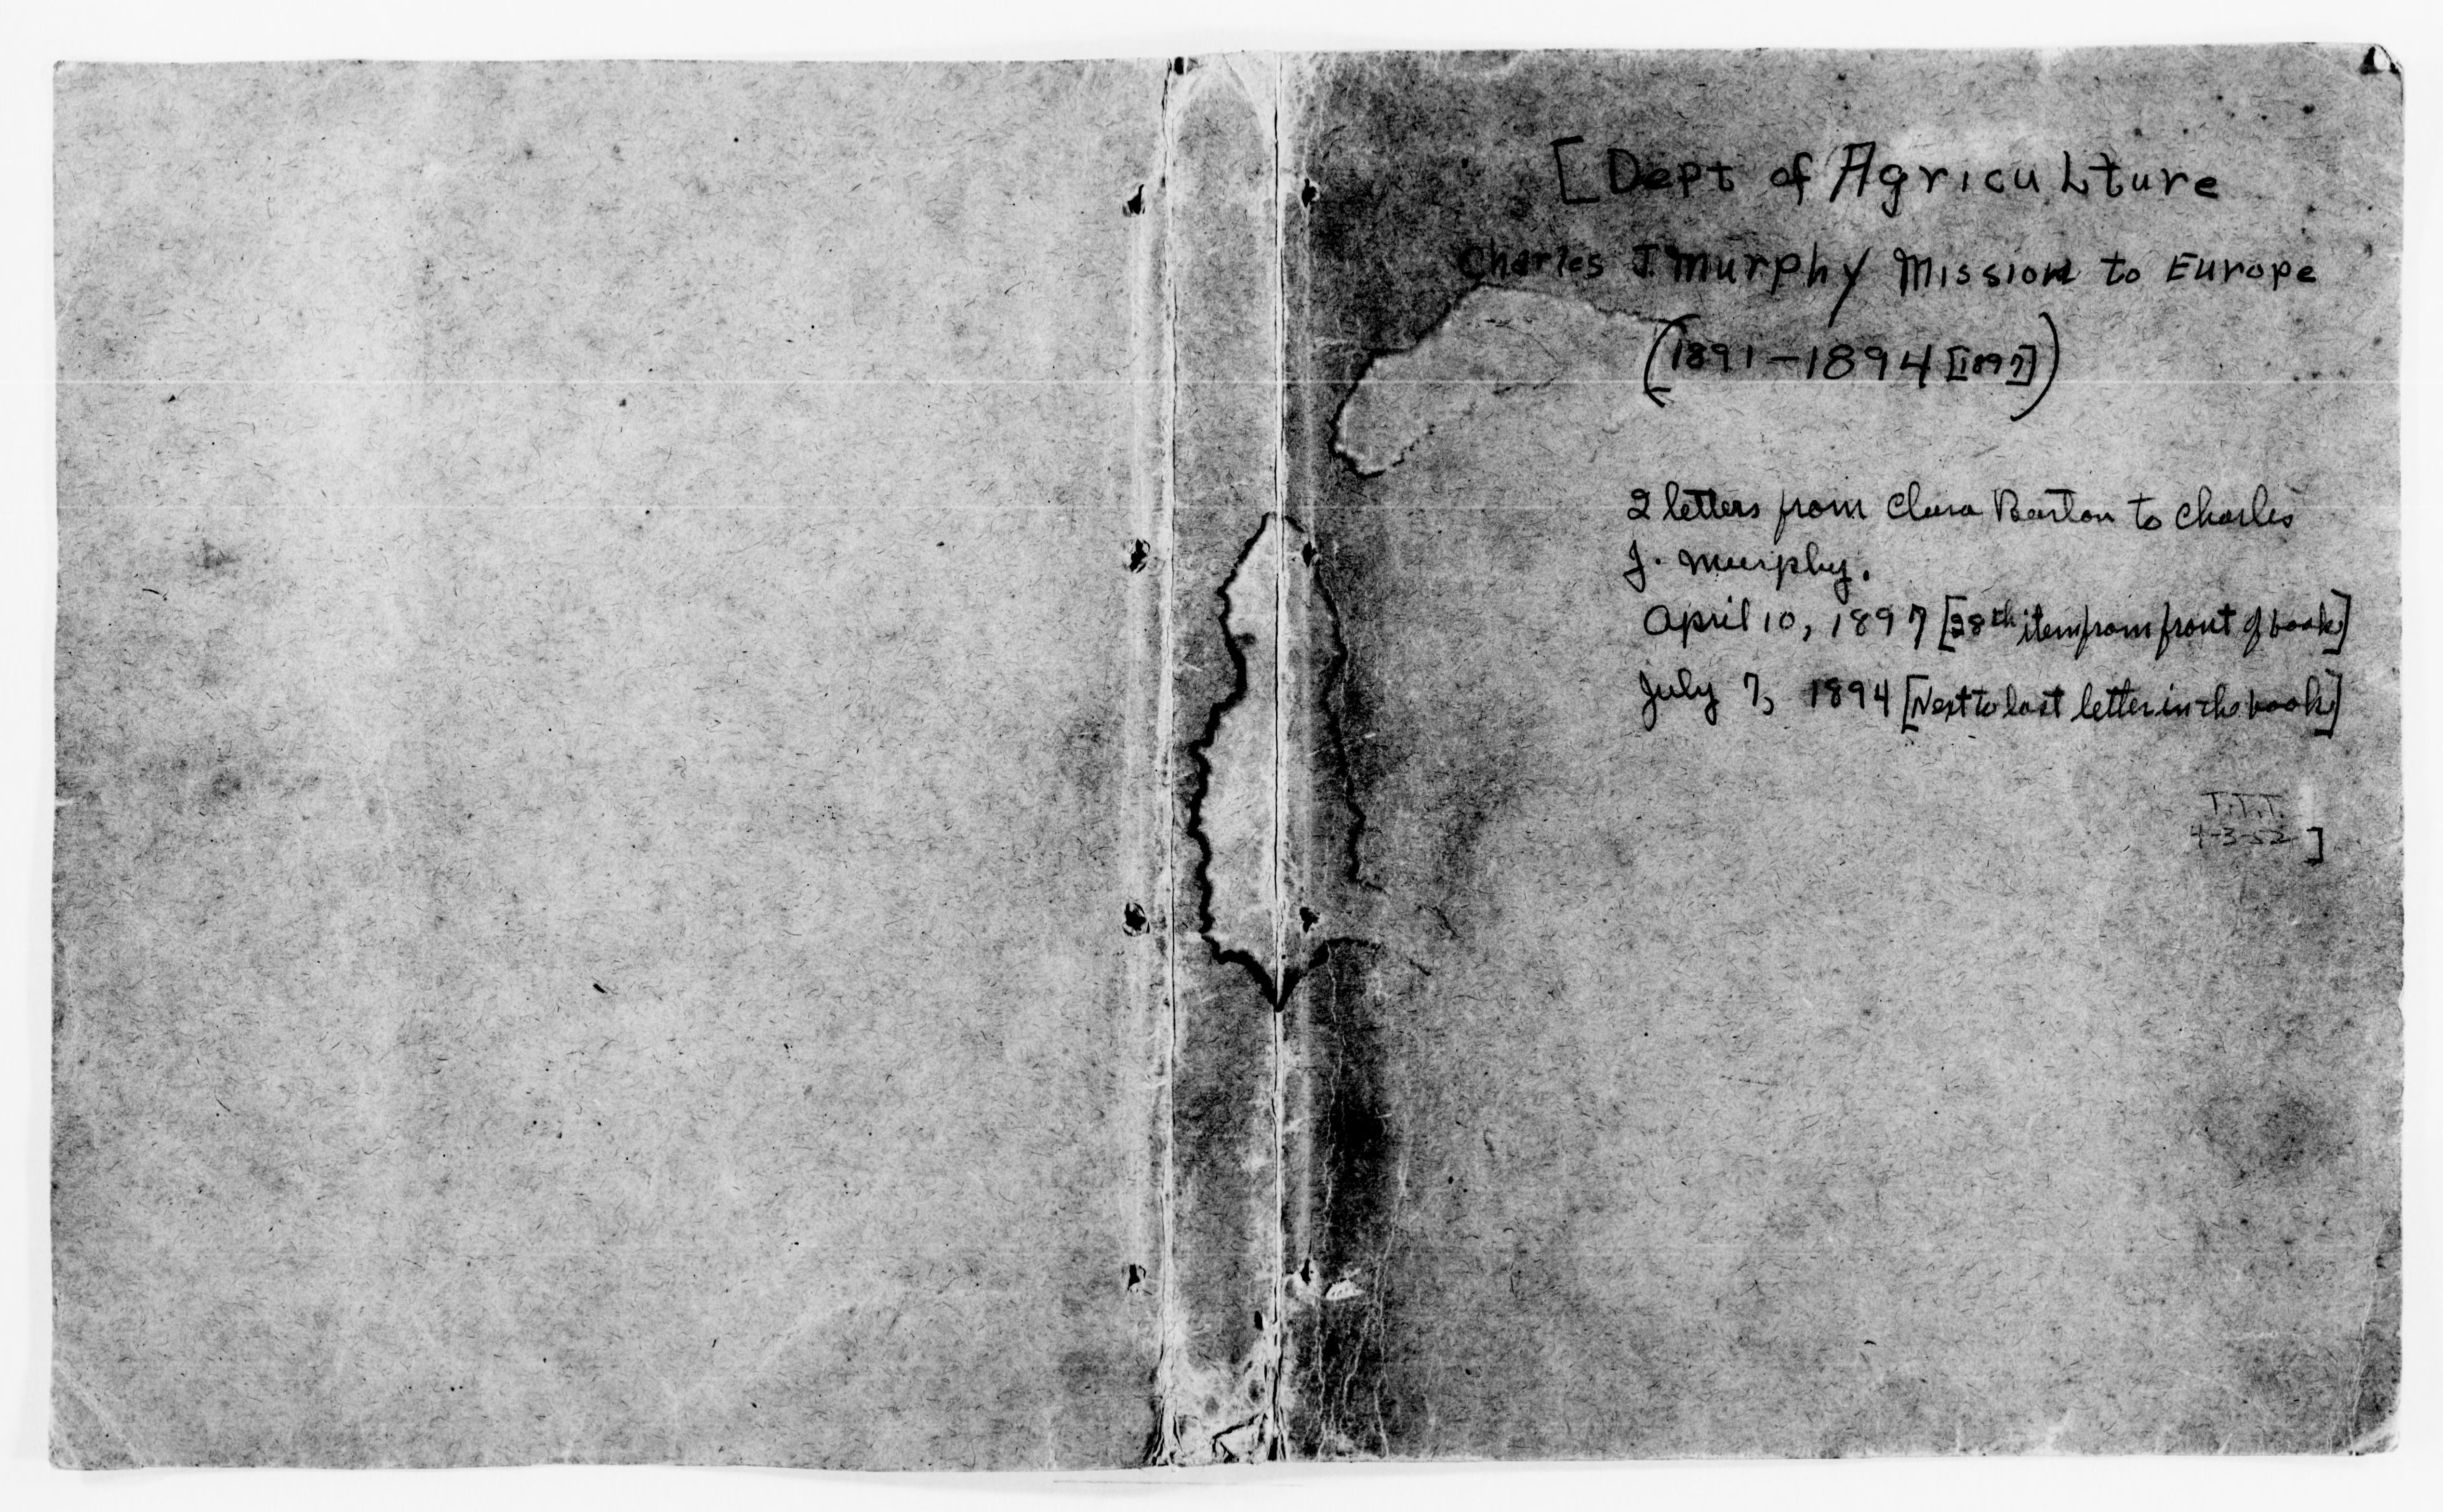 [Dept of Agriculture
Charles J. Murphy Mission to Europe
(1891-1894 [1897])
2 letters from Clara Barton to Charles
J. Murphy.
April 10, 1897 [28th item from front of book]
July 7, 1894 [Next to last letter in the book]
T.T.T.
4-3-52]